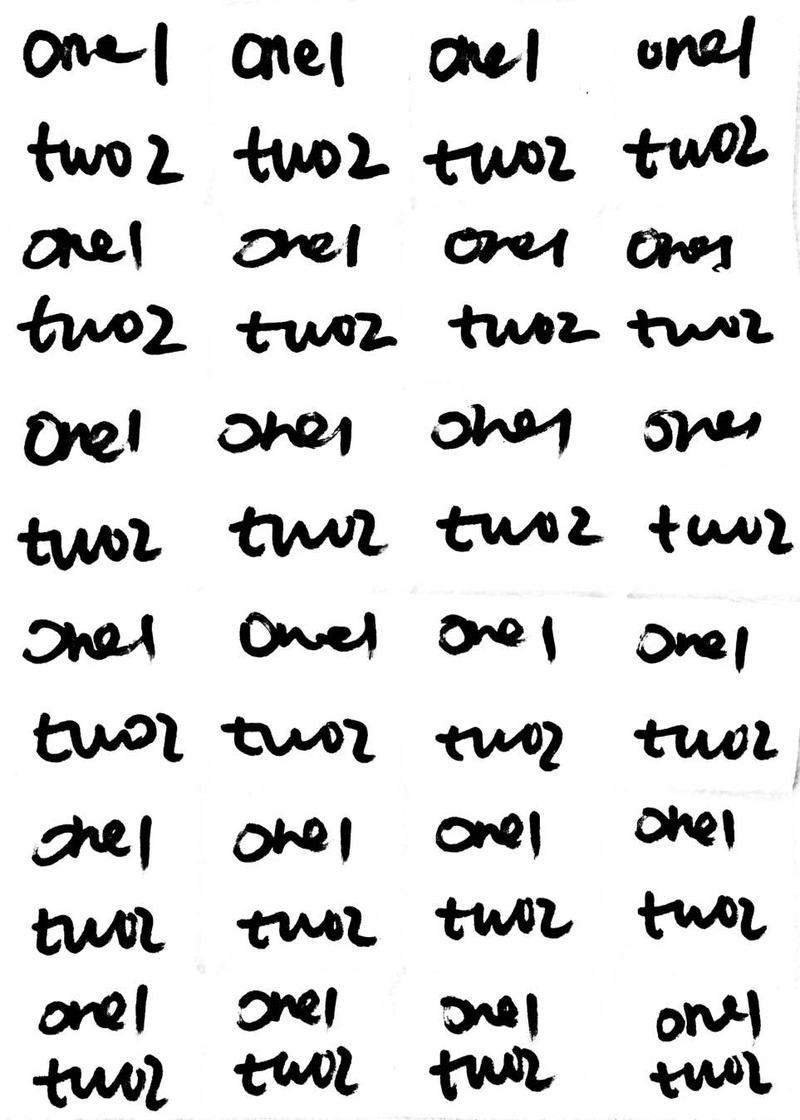 one1 one1 one1 one1
two2 two2 two2 two2
one1 one1 one1 one1
two2 two2 two2 two2
one1 one1 one1 one1
two2 two2 two2 two2
one1 one1 one1 one1
two2 two2 two2 two2
one1 one1 one1 one1
two2 two2 two2 two2
one1 one1 one1 one1
two2 two2 two2 two2